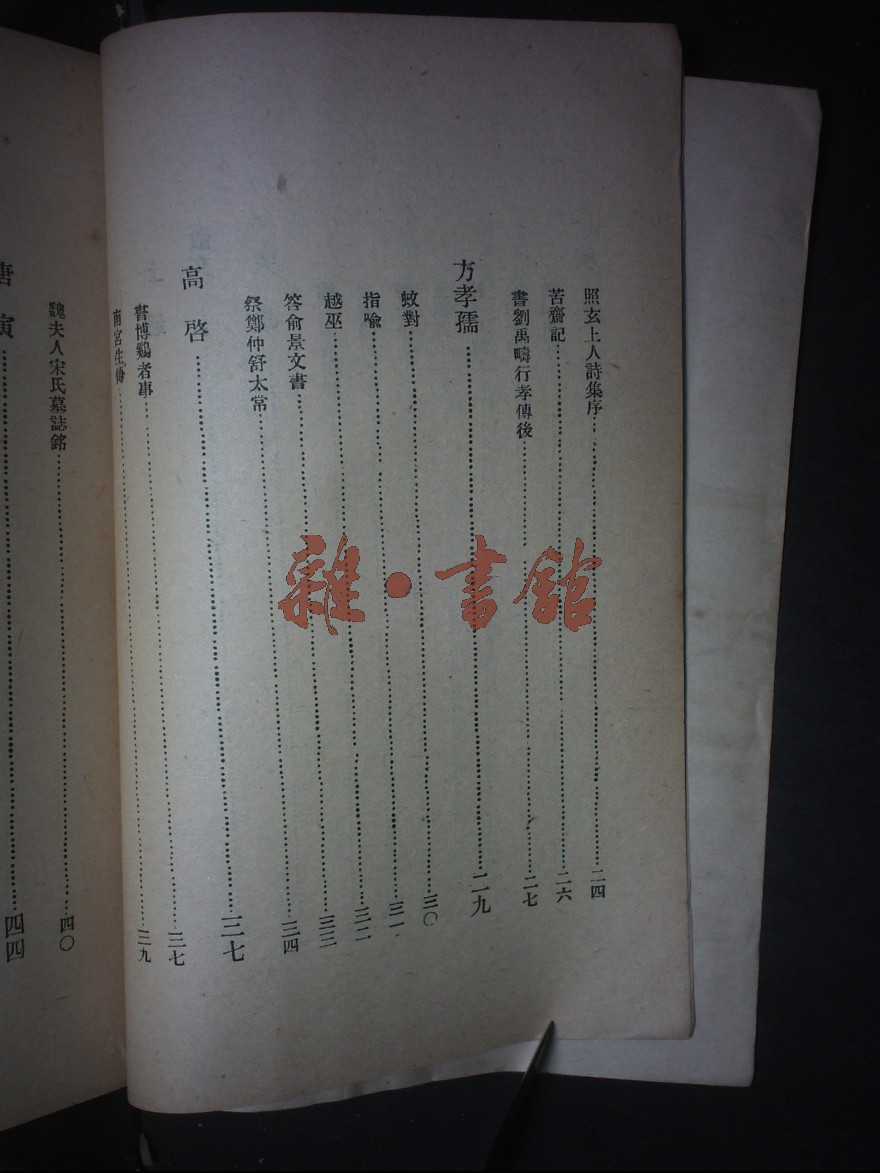 照玄上人詩集序……二四
苦齋記……二六
書劉禹疇行孝傳後……二七
方孝孺……二九
蚊對……三〇
指喻……三一
越巫……三二
答俞景文書……三三
祭鄭仲舒太常……三四
高啓……三七
書博鷄者事……三七
南宮生傳……三九
魏夫人宋氏墓誌銘……四〇
唐……四四
雜·書館